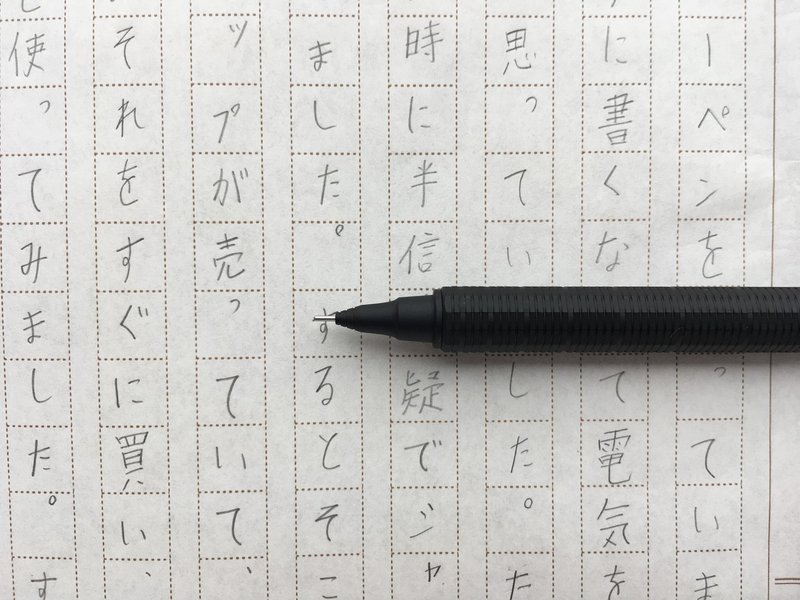 ーペンを っていま
に書くな て電気を
思ってい した。た
時に半信 疑でジャ
ました。するとそこ
ップが売っていて、
それをすぐに買い、
使ってみました。す